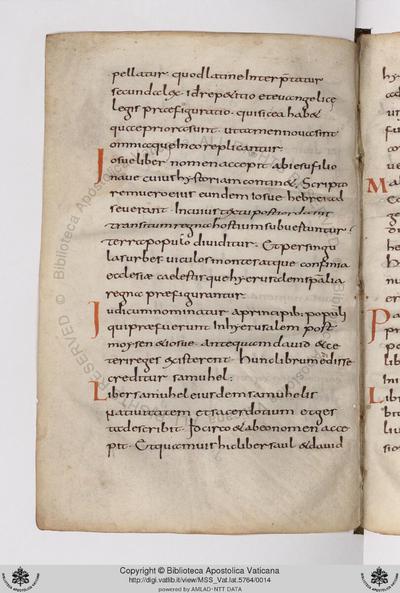 pellatur quod latine Interp̄tatur
secunda lex · id repetitio et euangelicę
legis praefiguratio · qui sic ea habet
quae priora sunt · ut tamen noua sint
omnia que In eo replicantur
Iosue liber nomen accepit ab iesu filio
naue cuius hystoriam continet · Scripto
rem uero eius eundem iosue hebrei ad
seuerant · In cuius textu post iordanis
transitum regna hostium subuertuntur ·
terra populo diuiditur · Et persingu
las urbes uiculos montes atque confinia
ecclesiae caelestisque hyerusalem sp̄alia
regna praefigurantur
Iudicum nominatur a principib; populi
qui praefuerunt In hyerusalem post
moysen et iosue · antequam dauid et ce
teri reges existerent · hunc librum edidisse
creditur samuhel :
Liber samuhel eiusdem samuhelis
natiuitatem et sacerdotium et ges
ta describit · Idcirco et ab eo nomen acce
pit · Et quamuis hic liber saul et dauid
Copyright © Biblioteca Apostolica Vaticana
http://digi.vatlib.it/view/MSS_Vat.lat.5764/0014
powered by AMLAD-NTT DATA